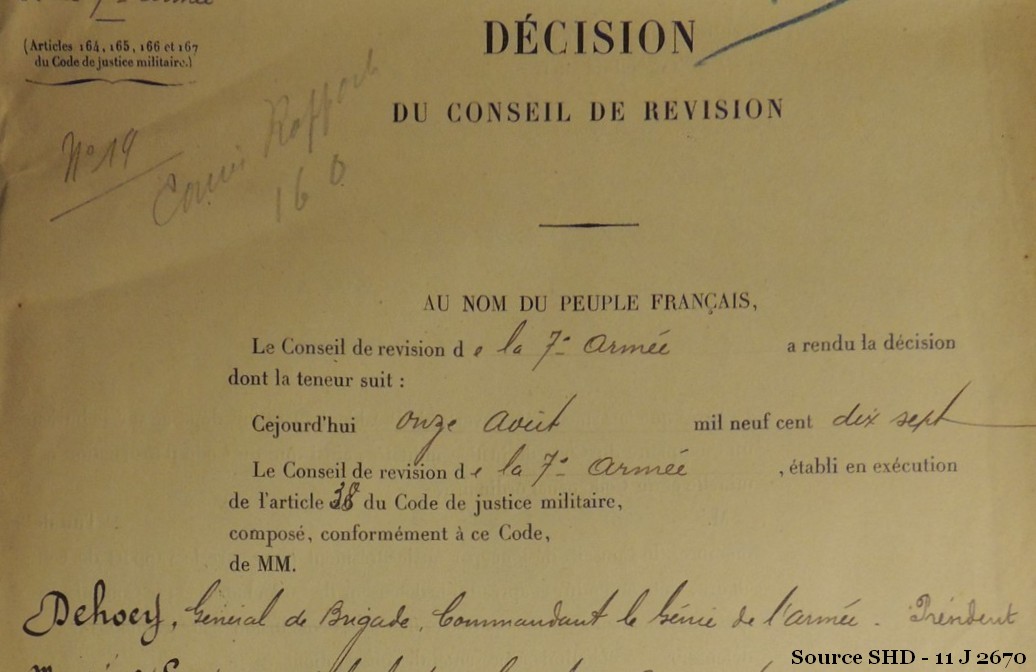 7e Armée
(Articles 164, 165, 166 et 167
du Code de justice militaire.)
DÉCISION
DU CONSEIL DE REVISION
N° 19
Rapport
16 0
AU NOM DU PEUPLE FRANÇAIS,
Le Conseil de revision de la 7e Armée a rendu la décision
dont la teneur suit :
Cejourd'hui onze Août mil neuf cent dix sept
Le Conseil de revision de la 7e Armée , établi en exécution
de l'article 38 du Code de justice militaire,
composé, conformément à ce Code,
de MM.
Dehoey, Général de Brigade, Commandant le Génie de l'armée. Président
Source SHD - 11 J 2670